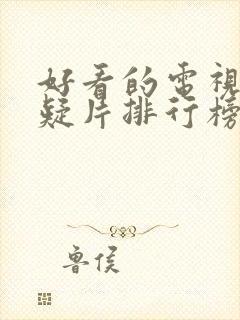 好看的電視
疑片排行榜
魯侯